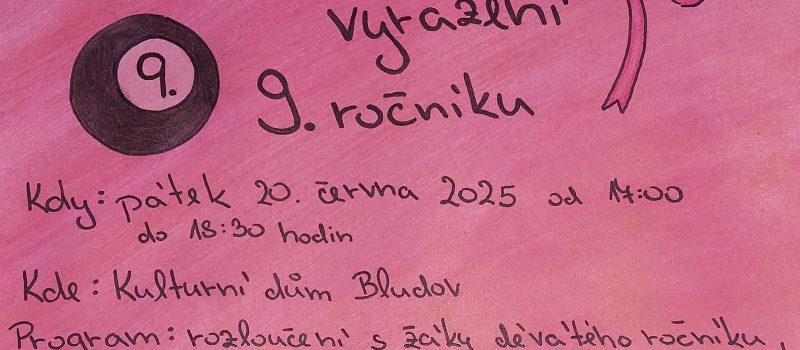 vyřazení
9.
9. ročníku
Kdy: pátek 20. června 2025 od 17:00
do 18:30 hodin
Kde: Kulturní dům Bludov
Program: rozloučení s žáky devátého ročníku,